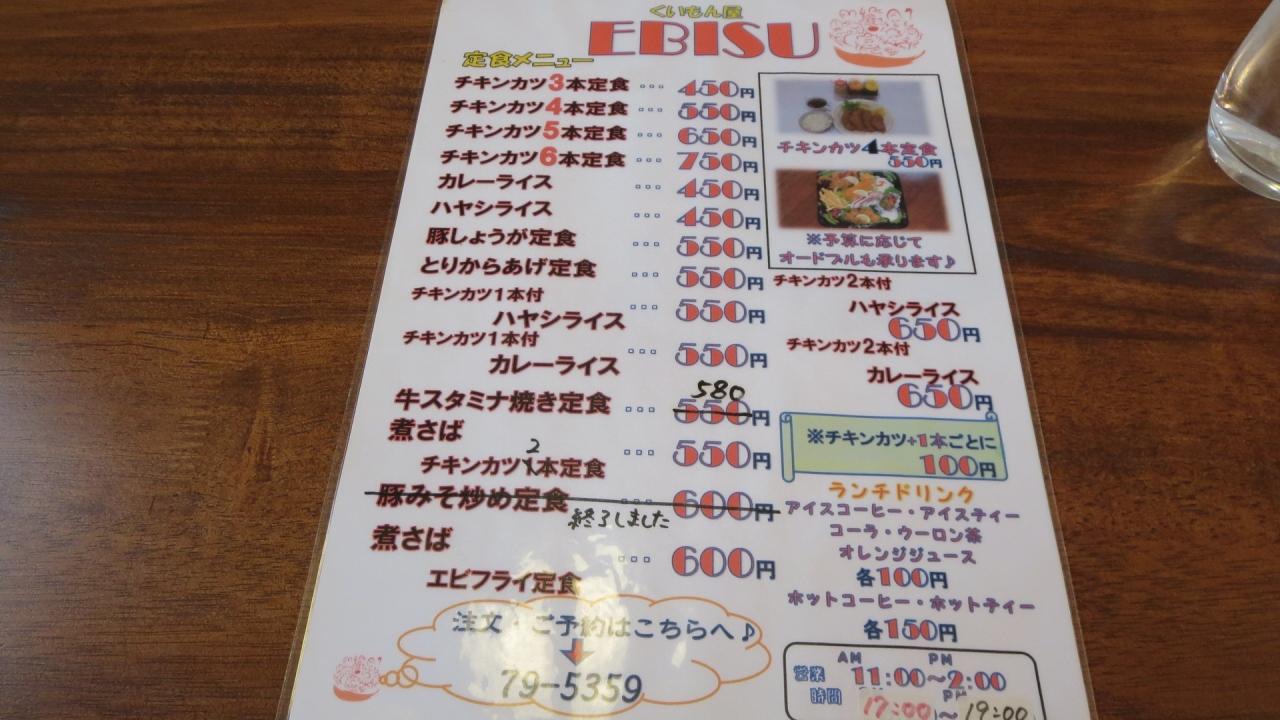 くいもん屋
EBISU
定食メニュー
チキンカツ3本定食 … 450円
チキンカツ4本定食 … 550円
チキンカツ5本定食 … 650円
チキンカツ6本定食 … 750円
カレーライス … 450円
ハヤシライス … 450円
豚しょうが定食 … 550円
とりからあげ定食 … 550円
チキンカツ1本付
ハヤシライス … 550円
チキンカツ1本付
カレーライス … 550円
580
牛スタミナ焼き定食 … 550円
煮さば
2
チキンカツ1本定食 … 550円
豚みそ炒め定食 … 600円
終了しました
煮さば
エビフライ定食 … 600円
注文・ご予約はこちらへ♪
79-5359
チキンカツ4本定食
550円
※予算に応じて
オードブルも承ります♪
チキンカツ2本付
ハヤシライス
650円
チキンカツ2本付
カレーライス
650円
※チキンカツ+1本ごとに
100円
ランチドリンク
アイスコーヒー・アイスティー
コーラ・ウーロン茶
オレンジジュース
各100円
ホットコーヒー・ホットティー
各150円
AM PM
営業 11:00~2:00
時間 PM
17:00~19:00